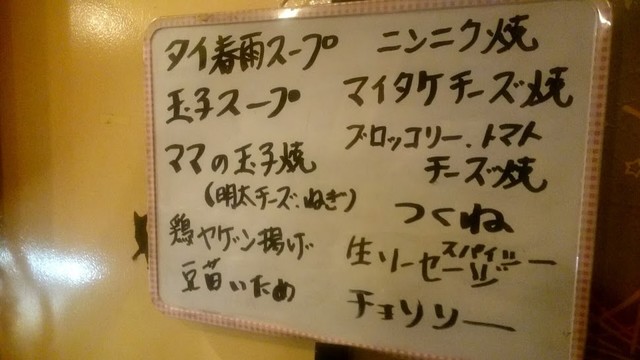 タイ春雨スープ
玉子スープ
ママの玉子焼
(明太チーズ・ねぎ)
鶏ヤゲン揚げ
豆苗いため
ニンニク焼
マイタケチーズ焼
ブロッコリー、トマト
チーズ焼
つくね
生ソーセージ
スパイシー
チョリソー